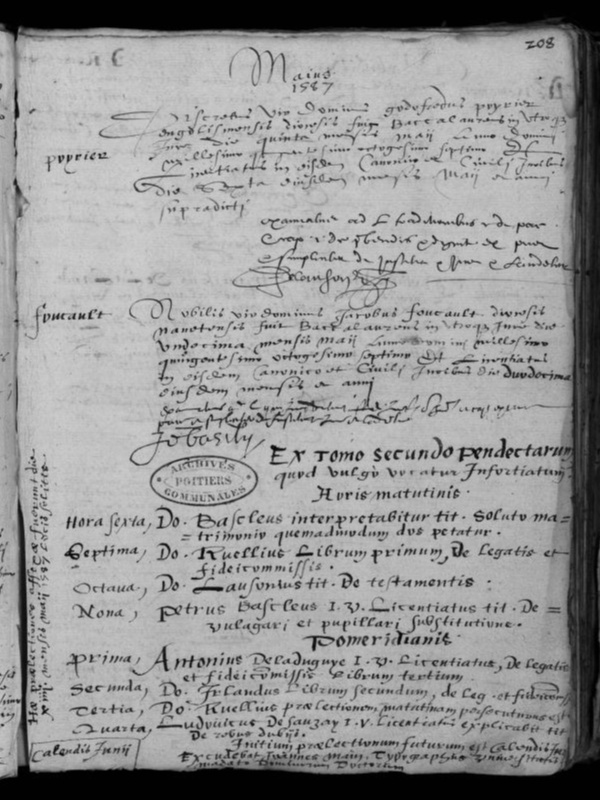 208
Maius
1587
poyrier
Discretus vir dominus godofredus poyrier
engolismensis diocesis fuit Baccalaureus in utroq3
Jure die quinta mensis maij Anno domini
millesimo quingentesimo octogesimo septimo Et
licentiatus in eisdem Canonico et Civili Juribus
die Sexta eiusdem mensis Maij et anni
supradicti
foucault
Nobilis vir dominus Jacobus foucault diocesis
nanetensis fuit Baccalaureus in utroq3 Jure die
undecima mensis maij Anno domini millesimo
quingentesimo octogesimo septimo Et licentiatus
in eisdem Canonico et Civili Juribus die duodecima
eiusdem mensis et anni
ARCHIVES
POITIERS
COMMUNALES
Ex Tomo secundo pendectarum
quod vulgo vocatur Infortiatum.
Horis matutinis.
Hora sexta, Do. Bascleus interpretabitur tit. Soluto ma=
=trimonio quemadmodum dos petatur.
Septima, Do. Ruellius Librum primum, De legatis et
fideicommissis.
Octava, Do. Lausonius tit. De testamentis:
Nona, Petrus Bascleus I. V. Licentiatus tit. De=
vulagari et pupillari substitutione.
Pomeridianis
Prima, Antonius Deladuguye I. V. Licentiatus, De legatis
et fideicommissis Librum tertium.
Secunda, Do. Irlandus Librum secundum, de leg. et fideicommiss
Tertia, Do. Ruellius prælectionem matutinam persecuturus est
Quarta, Ludovicus De sauzay I. V. Licentiatus explicabit tit
De rebus dubijs.
Initium prælectionum futurum est Calendis Iunij
Excudebat Ioannes Main, Typographus Universitatis
mandato Dominorum Doctorum
Hæ prælectiones affixæ fuerunt die
mensis maij 1587 locis solitis
Calendis Iunij